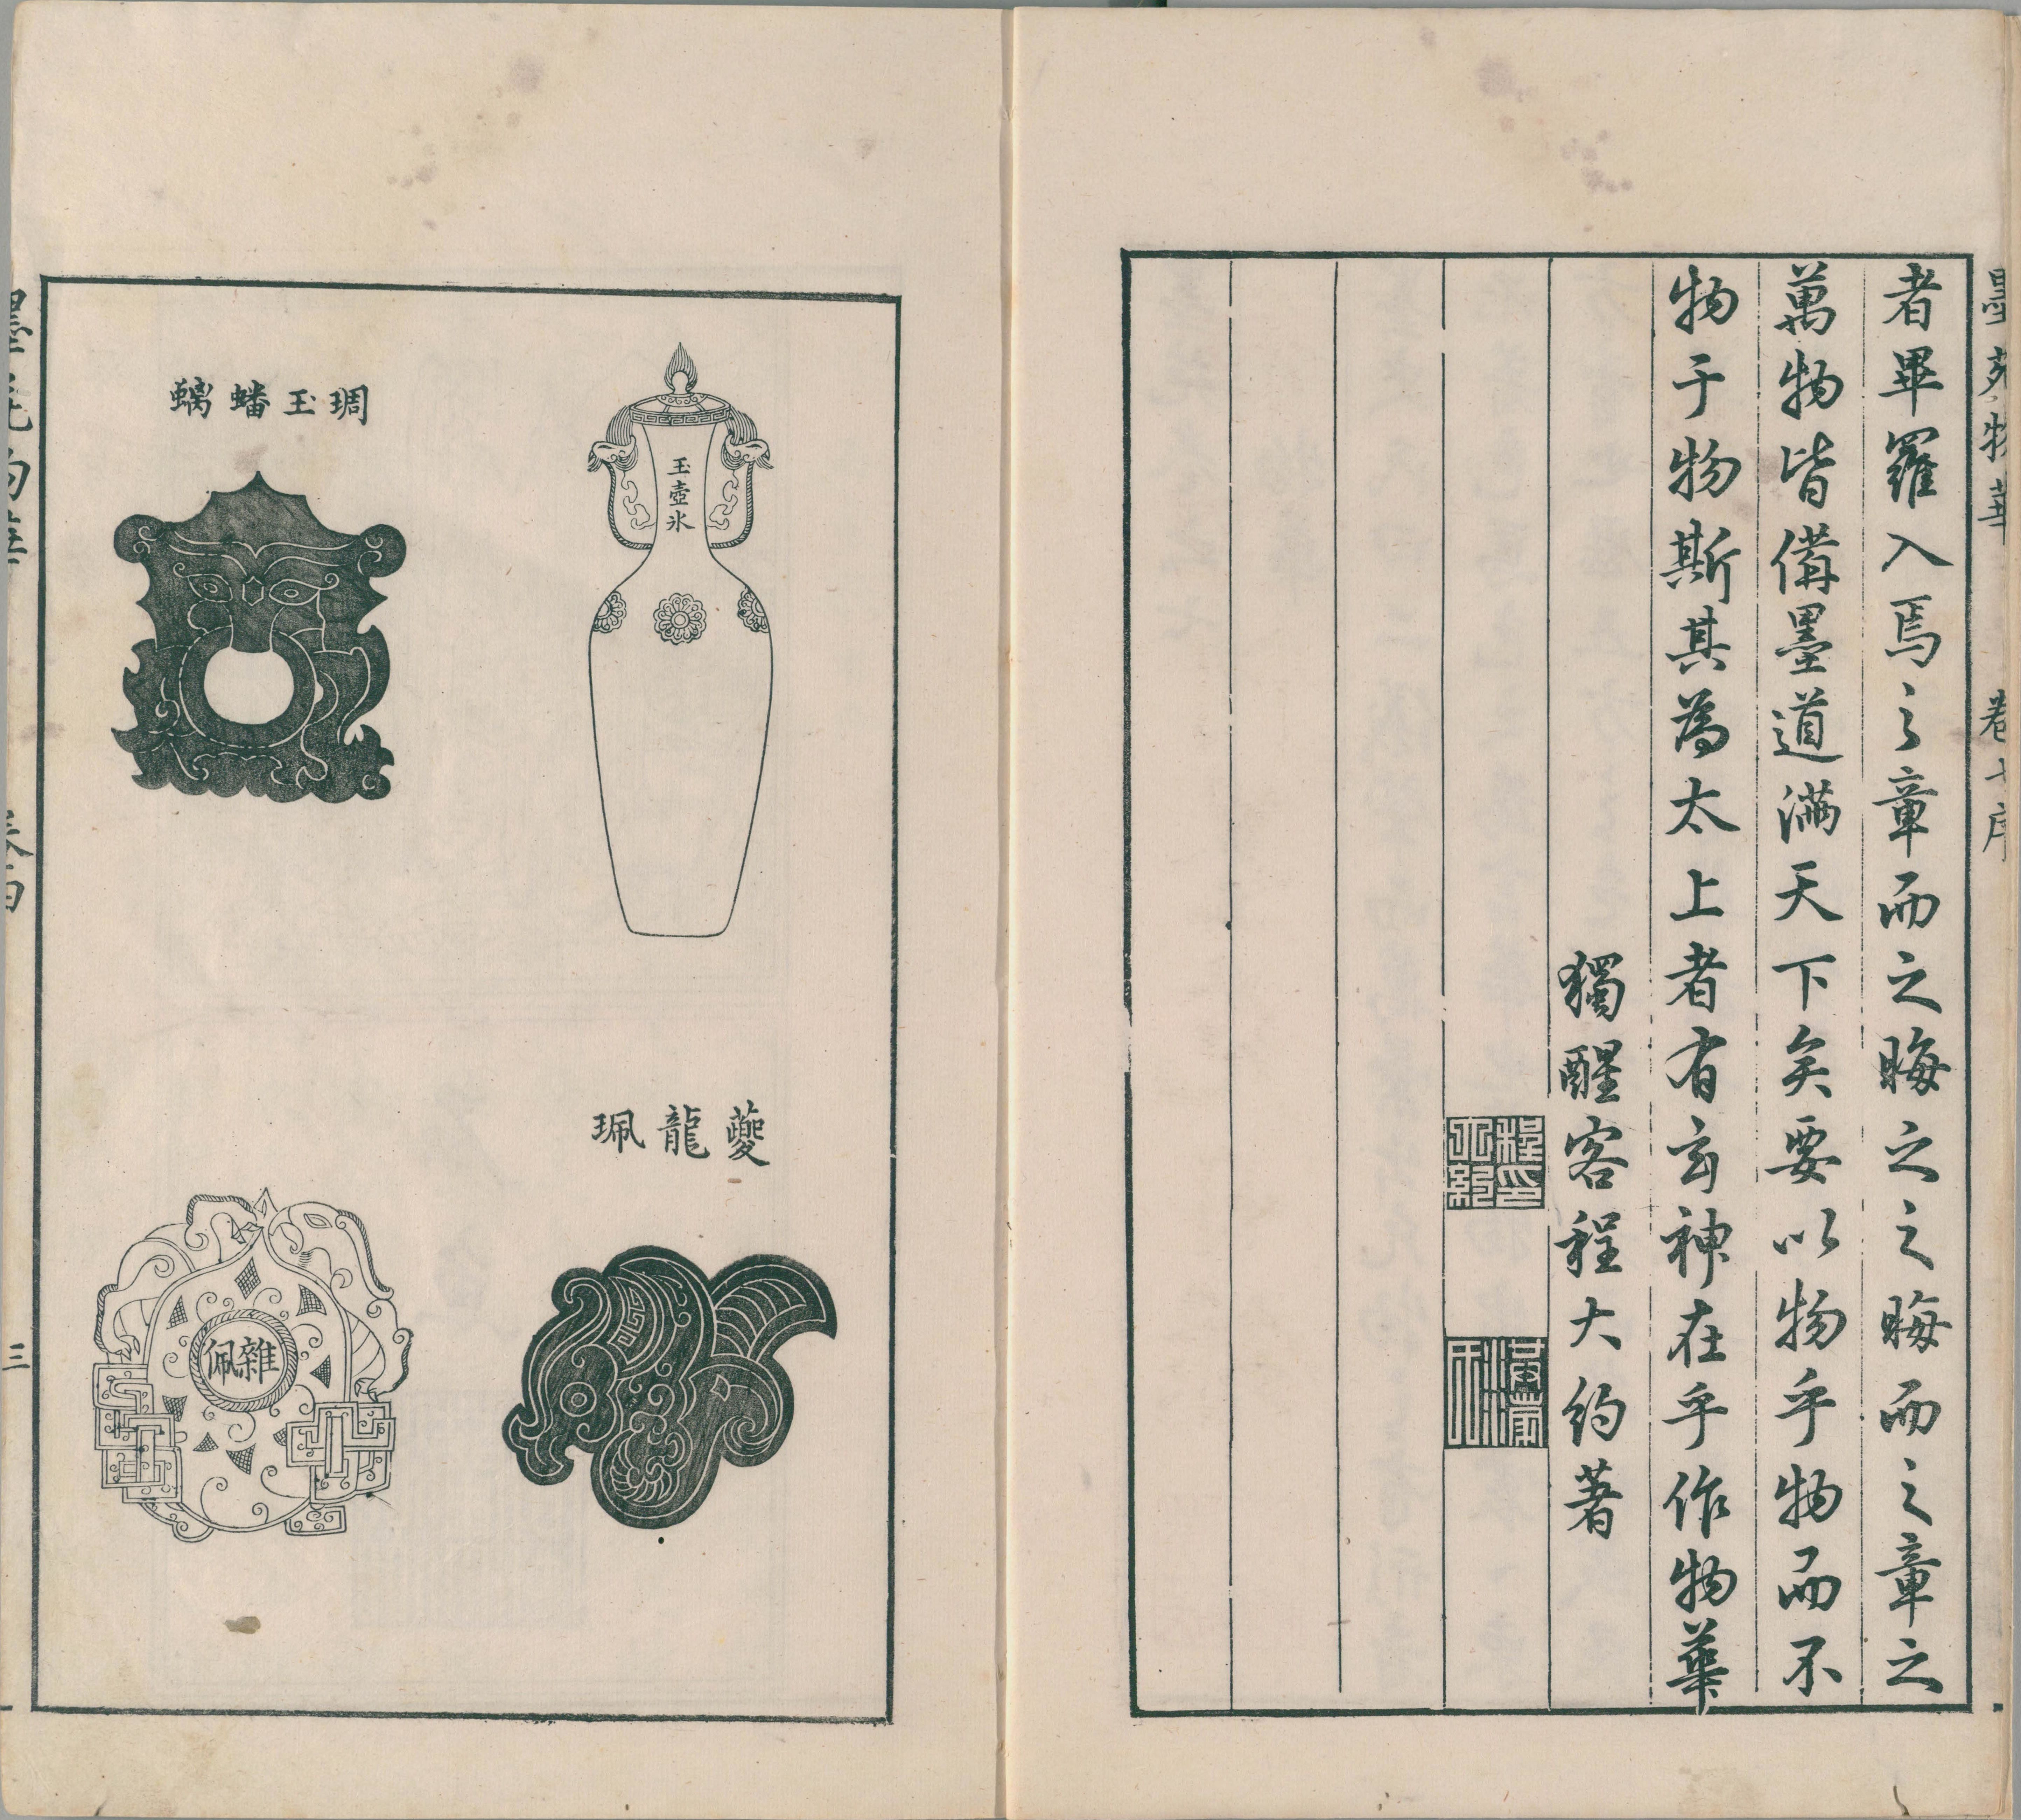 墨苑物華
卷七序
者畢羅入焉之章而之晦之之晦而之章之
萬物皆備墨道滿天下矣要以物乎物而不
物于物斯其為太上者有玄神在乎作物華
獨醒客程大約著
程大約印
玉壺冰
琱玉蟠螭
夔龍珮
雜佩
三